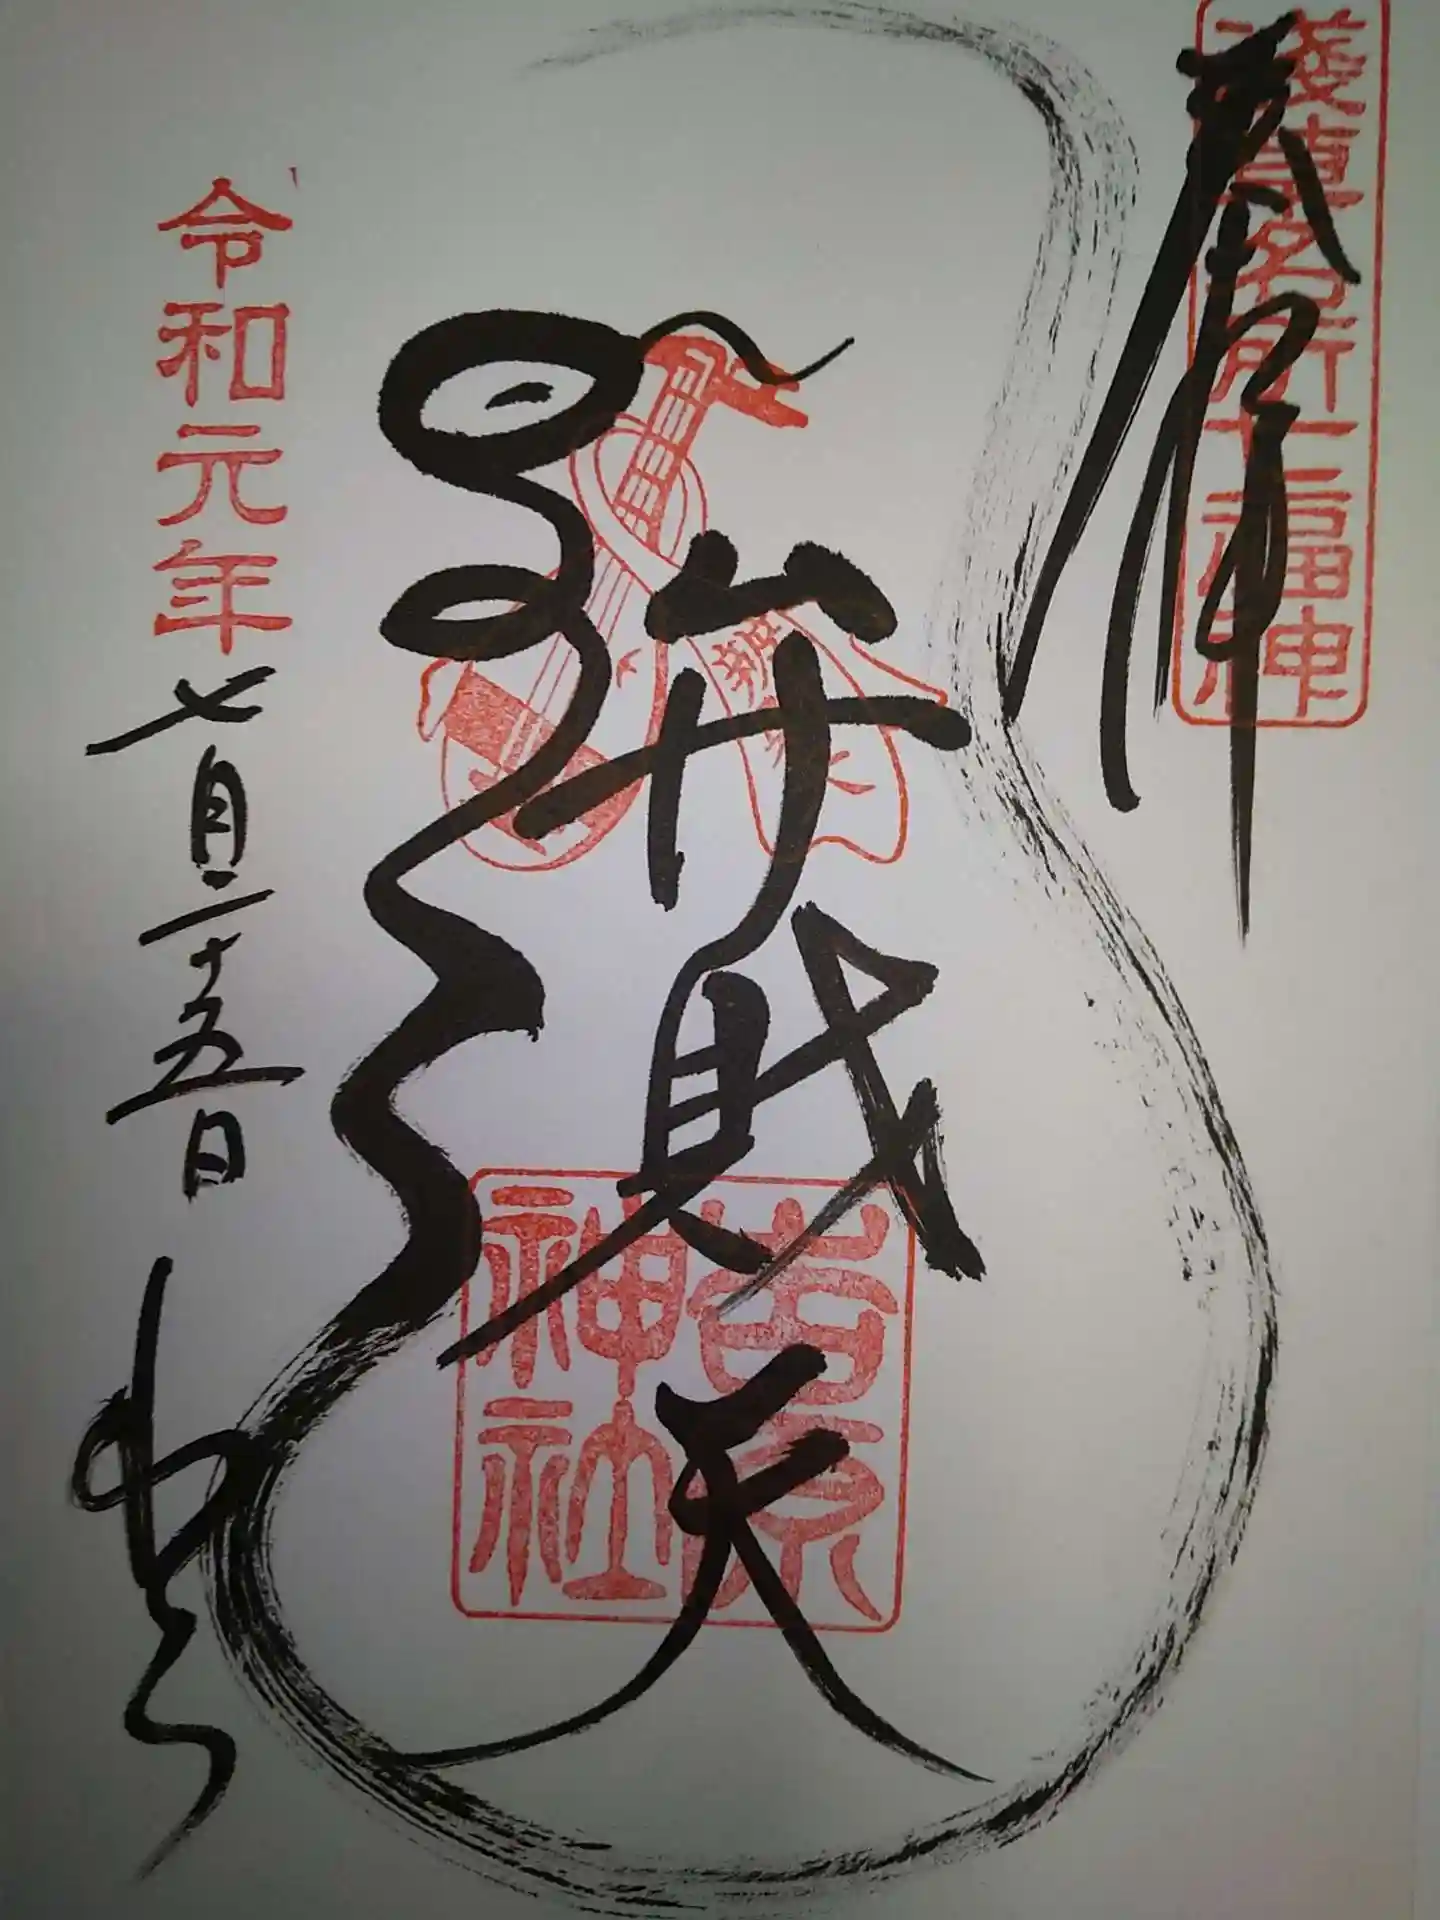 奉拝
浅草名所七福神
弁財天
辯財天
吉原神社
令和元年
七月二十五日